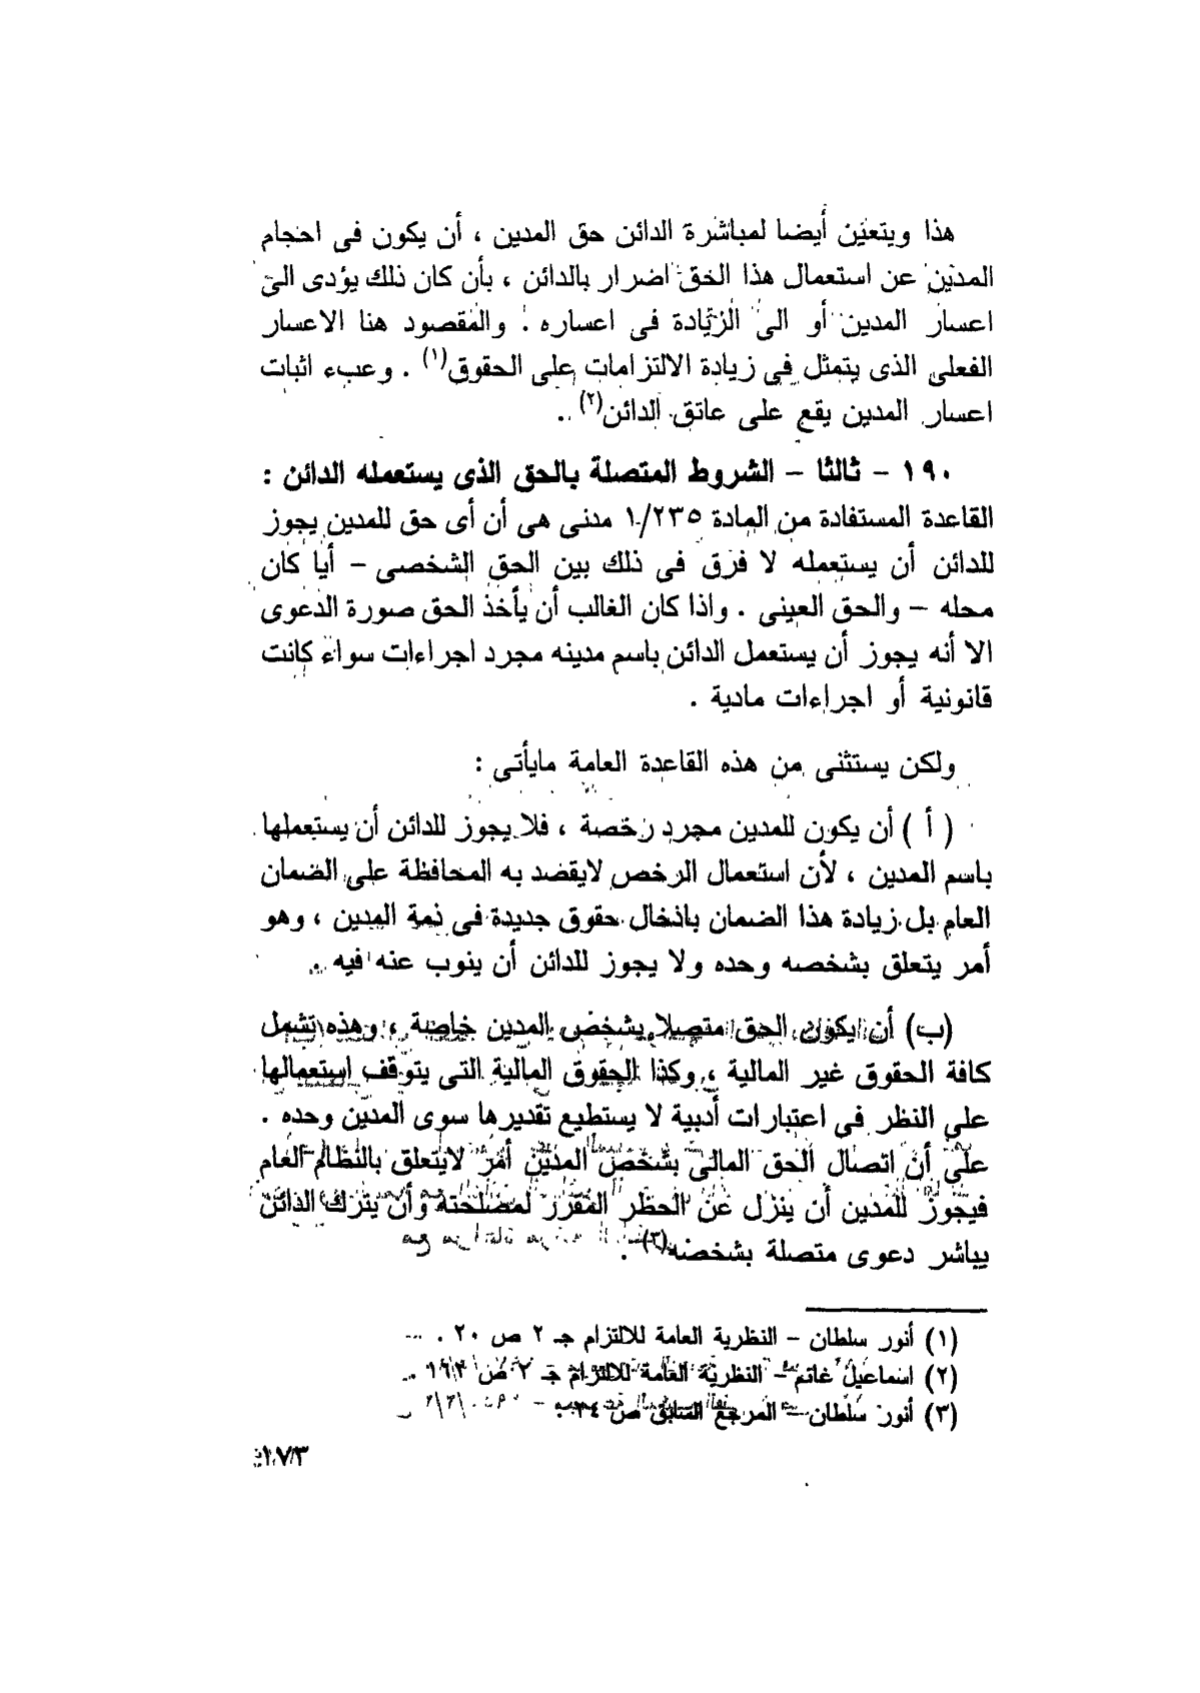 هذا ويتعين أيضا لمباشرة الدائن حق المدين ، أن يكون فى احجام
المدين عن استعمال هذا الحق اضرار بالدائن ، بأن كان ذلك يؤدى الى
اعسار المدين أو الى الزيادة فى اعساره . والمقصود هنا الاعسار
الفعلى الذى يتمثل فى زيادة الالتزامات على الحقوق(١) . وعبء اثبات
اعسار المدين يقع على عاتق الدائن(٢) .
١٩٠ – ثالثا – الشروط المتصلة بالحق الذى يستعمله الدائن :
القاعدة المستفادة من المادة ١/٢٣٥ مدنى هى أن أى حق للمدين يجوز
للدائن أن يستعمله لا فرق فى ذلك بين الحق الشخصى – أيا كان
محله – والحق العينى . واذا كان الغالب أن يأخذ الحق صورة الدعوى
الا أنه يجوز أن يستعمل الدائن باسم مدينه مجرد اجراءات سواء كانت
قانونية أو اجراءات مادية .
ولكن يستثنى من هذه القاعدة العامة مايأتى :
( أ ) أن يكون للمدين مجرد رخصة ، فلا يجوز للدائن أن يستعملها
باسم المدين ، لأن استعمال الرخص لايقصد به المحافظة على الضمان
العام بل زيادة هذا الضمان بادخال حقوق جديدة فى ذمة المدين ، وهو
أمر يتعلق بشخصه وحده ولا يجوز للدائن أن ينوب عنه فيه .
(ب) أن يكون الحق متصلا بشخص المدين خاصة ، وهذه تشمل
كافة الحقوق غير المالية ، وكذا الحقوق المالية التى يتوقف استعمالها
على النظر فى اعتبارات أدبية لا يستطيع تقديرها سوى المدين وحده .
على أن اتصال الحق المالى بشخص المدين أمر لايتعلق بالنظام العام
فيجوز للمدين أن ينزل عن الحظر المقرر لمصلحته وأن يترك الدائن
يباشر دعوى متصلة بشخصه(٣) .
(١) أنور سلطان – النظرية العامة للالتزام جـ ٢ ص ٢٠ .
(٢) اسماعيل غانم – النظرية العامة للالتزام جـ ٢ ص
(٣) أنور سلطان – المرجع السابق ص ٢٤ .
١٧٣